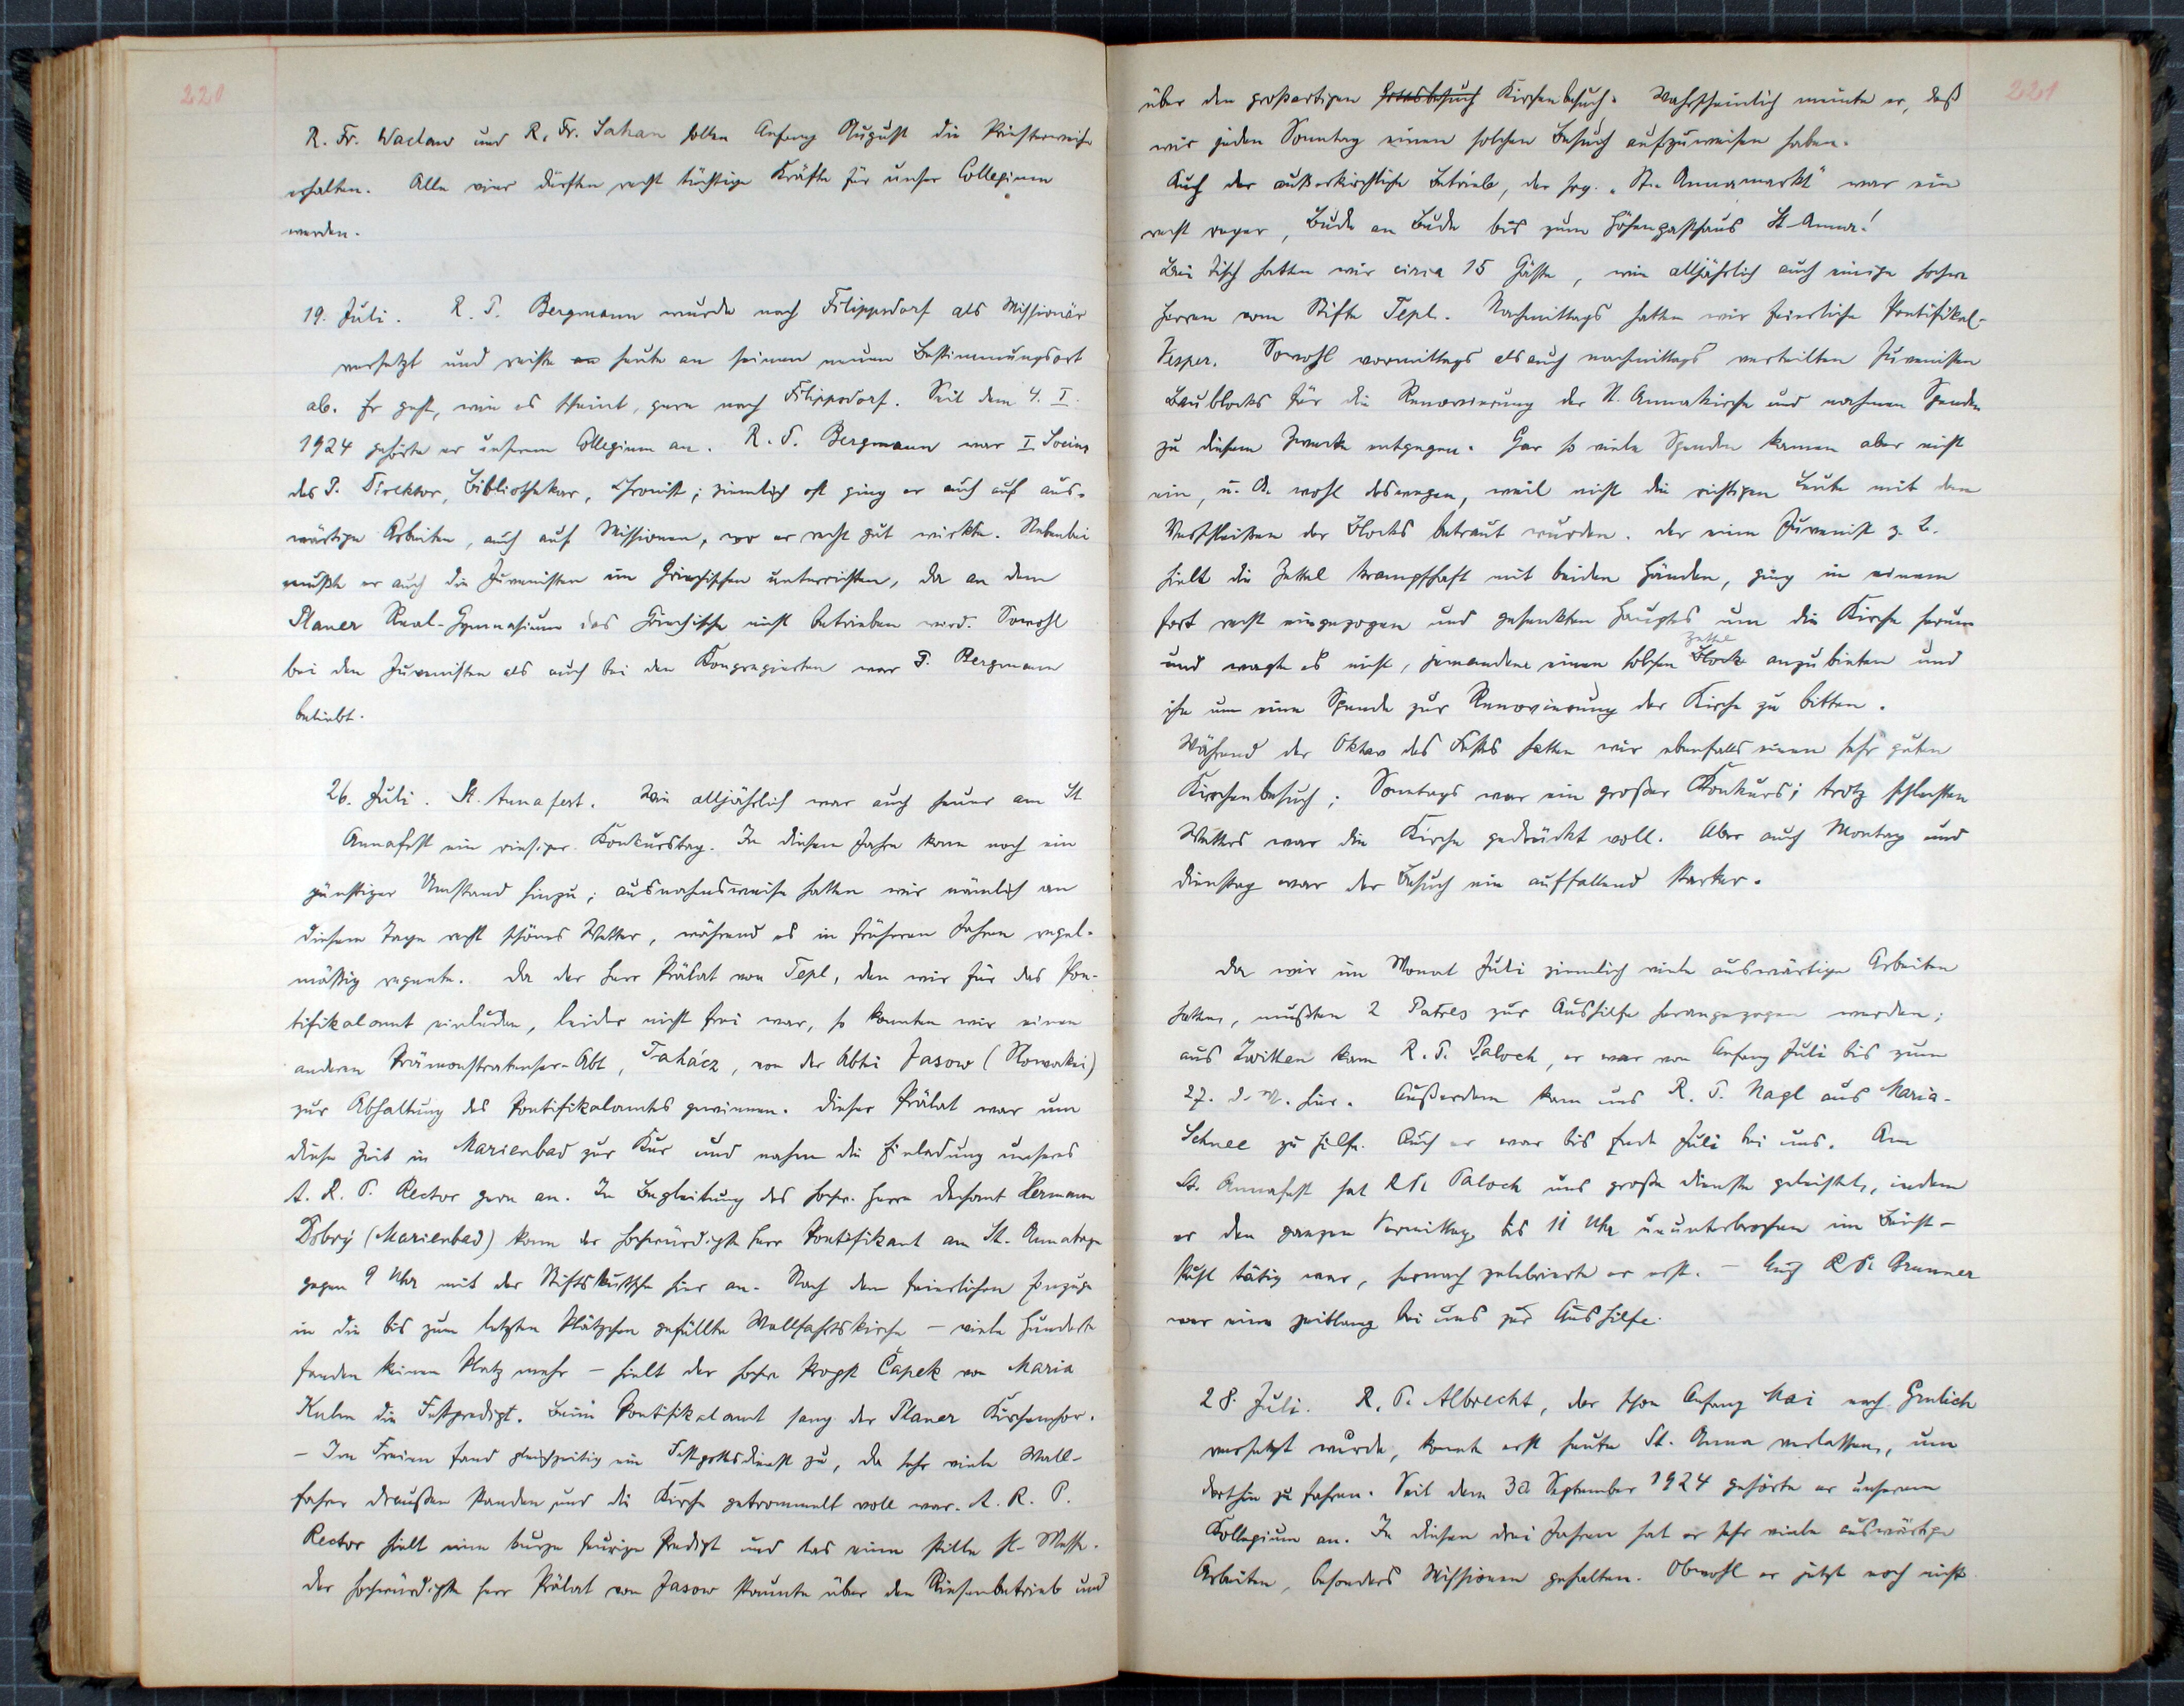 220
R. Fr. Waclaw und R. Fr. Sahan sollen Anfang August die Priesterweihe
erhalten. Alle vier dürften recht tüchtige Kräfte für unser Collegium
werden.
19. Juli. R. P. Bergmann wurde nach Filippsdorf als Missionär
versetzt und reiste heute an seinen neuen Bestimmungsort
ab. Er geht, wie es scheint, gern nach Filippsdorf. Seit dem 4. I.
1924 gehörte er unserem Collegium an. R. P. Bergmann war I. Socius
des P. Direktor, Bibliothekar, Chronist; ziemlich oft ging er auch auf aus-
wärtige Arbeiten, auch auf Missionen, wo er recht gut wirkte. Nebenbei
mußte er auch die Juvenisten im Griechischen unterrichten, da an dem
Planer Real-Gymnasium das Griechische nicht betrieben wird. Sowohl
bei den Juvenisten als auch bei den Kongregierten war P. Bergmann
beliebt.
26. Juli. St. Annafest. Wie alljährlich war auch heuer am St.
Annafest ein riesiger Konkurstag. In diesem Jahre kam noch ein
günstiger Umstand hinzu; ausnahmsweise hatten wir nämlich an
diesem Tage recht schönes Wetter, während es in früheren Jahren regel-
mäßig regnete. Da der Herr Prälat von Tepl, den wir für das Pon-
tifikalamt einluden, leider nicht frei war, so konnten wir einen
anderen Prämonstratenser-Abt, Takácz, von der Abtei Jasow (Slowakei)
zur Abhaltung des Pontifikalamtes gewinnen. Dieser Prälat war um
diese Zeit in Marienbad zur Kur und nahm die Einladung unseres
A. R. P. Rector gern an. In Begleitung des hochw. Herrn Dechant Hermann
Dobrý (Marienbad) kam der hochwürdigste Herr Pontifikant am St. Annatage
gegen 9 Uhr mit der Stiftskutsche hier an. Nach dem feierlichen Einzuge
in die bis zum letzten Plätzchen gefüllte Wallfahrtskirche – viele Hunderte
fanden keinen Platz mehr – hielt der hochw. Propst Čapek von Maria
Kulm die Festpredigt. Beim Pontifikalamt sang der Planer Kirchenchor.
– Im Freien fand gleichzeitig ein Festgottesdienst zu, da sehr viele Wall-
fahrer draußen standen und die Kirche getrommelt voll war. A. R. P.
Rector hielt eine kurze feurige Predigt und las eine stille hl. Messe.
Der hochwürdigste Herr Prälat von Jasow staunte über den Riesenbetrieb und
221
über den großartigen Kirchenbesuch. Wahrscheinlich meinte er, daß
wir jeden Sonntag einen solchen Besuch aufzuweisen haben.
Auch der außerkirchliche Betrieb, der sog. „St. Annamarkt" war ein
recht reger, Bude an Bude bis zum Höhengasthaus St. Anna!
Bei Tisch hatten wir circa 15 Gäste, wie alljährlich auch einige hochw.
Herren vom Stifte Tepl. Nachmittags hatten wir feierliche Pontifikal-
Vesper. Sowohl vormittags als auch nachmittags verteilten Juvenisten
Baublocks für die Renovierung der St. Annakirche und nahmen Spenden
zu diesem Zwecke entgegen. Gar so viele Spenden kamen aber nicht
ein, u. A. wohl deswegen, weil nicht die richtigen Leute mit dem
Verschleißen der Blocks betraut wurden. Der eine Juvenist z. B.
hielt die Zettel krampfhaft mit beiden Händen, ging in einem
fort recht eingezogen und gesenkten Hauptes um die Kirche herum
und wagte es nicht, jemandem einen solchen Zettel anzubieten und
ihn um eine Spende zur Renovierung der Kirche zu bitten.
Während der Oktav des Festes hatten wir ebenfalls einen sehr guten
Kirchenbesuch; Sonntags war ein großer Konkurs; trotz schlechten
Wetters war die Kirche gedrückt voll. Aber auch Montag und
Dienstag war der Besuch ein auffallend starker.
Da wir im Monat Juli ziemlich viele auswärtige Arbeiten
hatten, mußten 2 Patres zur Aushilfe herangezogen werden;
aus Zwittau kam R. P. Paloch, er war von Anfang Juli bis zum
27. d. M. hier. Außerdem kam uns R. P. Nagl aus Maria-
Schnee zu Hilfe. Auch er war bis Ende Juli bei uns. Am
St. Annafest hat R. P. Paloch uns große Dienste geleistet, indem
er den ganzen Vormittag bis 11 Uhr ununterbrochen im Beicht-
stuhl tätig war, hernach zelebrierte er erst. – Auch R. P. Brunner
war eine zeitlang bei uns zur Aushilfe.
28. Juli. R. P. Albrecht, der schon Anfang Mai nach Grulich
versetzt wurde, konnte erst heute St. Anna verlassen, um
dorthin zu fahren. Seit dem 30. September 1924 gehörte er unserem
Kollegium an. In diesen drei Jahren hat er sehr viele auswärtige
Arbeiten, besonders Missionen gehalten. Obwohl er jetzt noch nicht